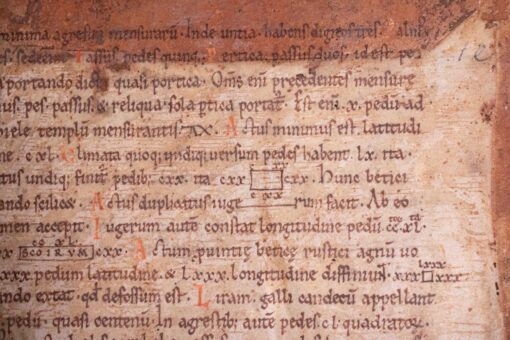 minima agrestiū mensurarū. Inde untia habens digitos tres.
es. sedecim. Passus pedes quinq;. Pertica passus duos. id est pe
a portando dicta quasi portica. Oms̄ enī precedentes mensure
ius. pes. passus. & reliqua. sola ptica portat᷑. Est enī .x. pedū ad
hiele templū mensurantis. Actus minimus est. latitudi
ne .cxl. Climata quoq; undiq; versum pedes habent .lx. ita
tus undiq; finit᷑ pedib; .cxx. ita cxx cxx. Hunc betici
cxx
ando scilicet. Actus duplicatus iuge rum facit. Ab eo
men accepit. Iugerum autē constat longitudine pedū ccxl
ccxl
cxx Actum puintie betice rustici agnū uo
lxxx
xxx pedum latitudine. & lxxx. longitudine diffiniunt. xxx xxx
ando extat. qd defossum est. Liram. galli candetū appellant
pedū. quasi centenū. In agrestib; autē pedes .cl. quadratos